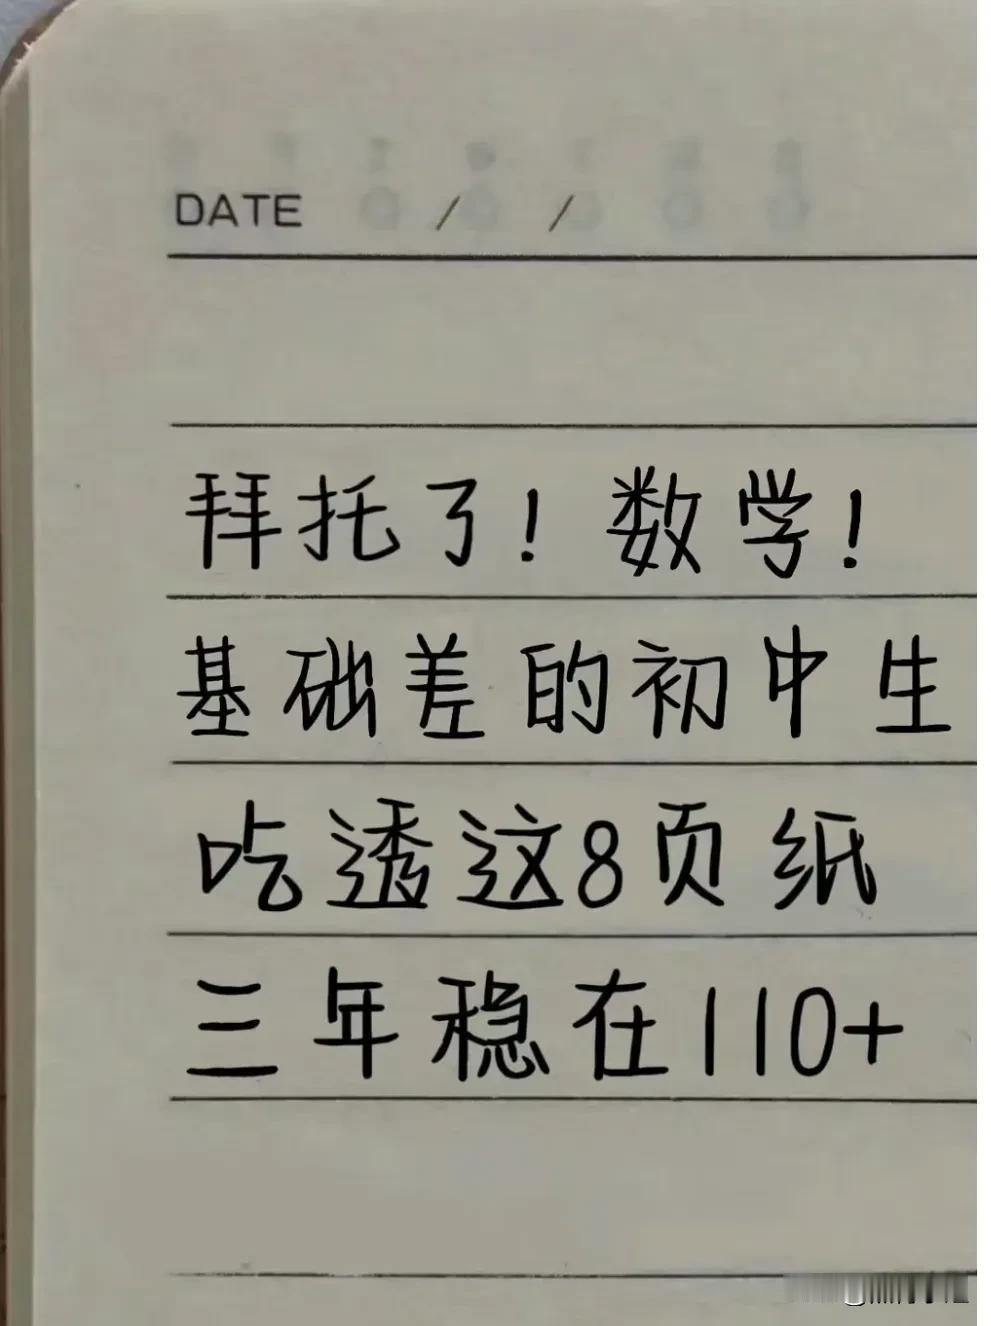 DATE / /
拜托了！数学！
基础差的初中生
吃透这8页纸
三年稳在110+